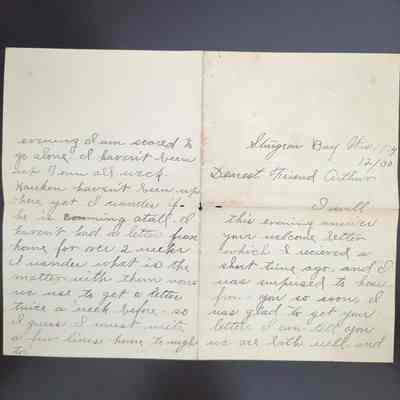 Sturgeon Bay Wis.
12/00
Dearest Friend Arthur
I will
this evening answer
your welcome letter
which I recieved a
short time ago. and I
was surpused to hear
from you so soon. I
was glad to get your
letter I can tell you
we are both well and
evening I am scared to
go alone. I havn't been
all week
havn't been up
here yet I wander if
he is comming atall. I
havn't had a letter from
home for over 2 weeks
I wander what is the
matter with them now
we use to get a letter
twice a week before. so
I guess I must write
a few lines home to night
to